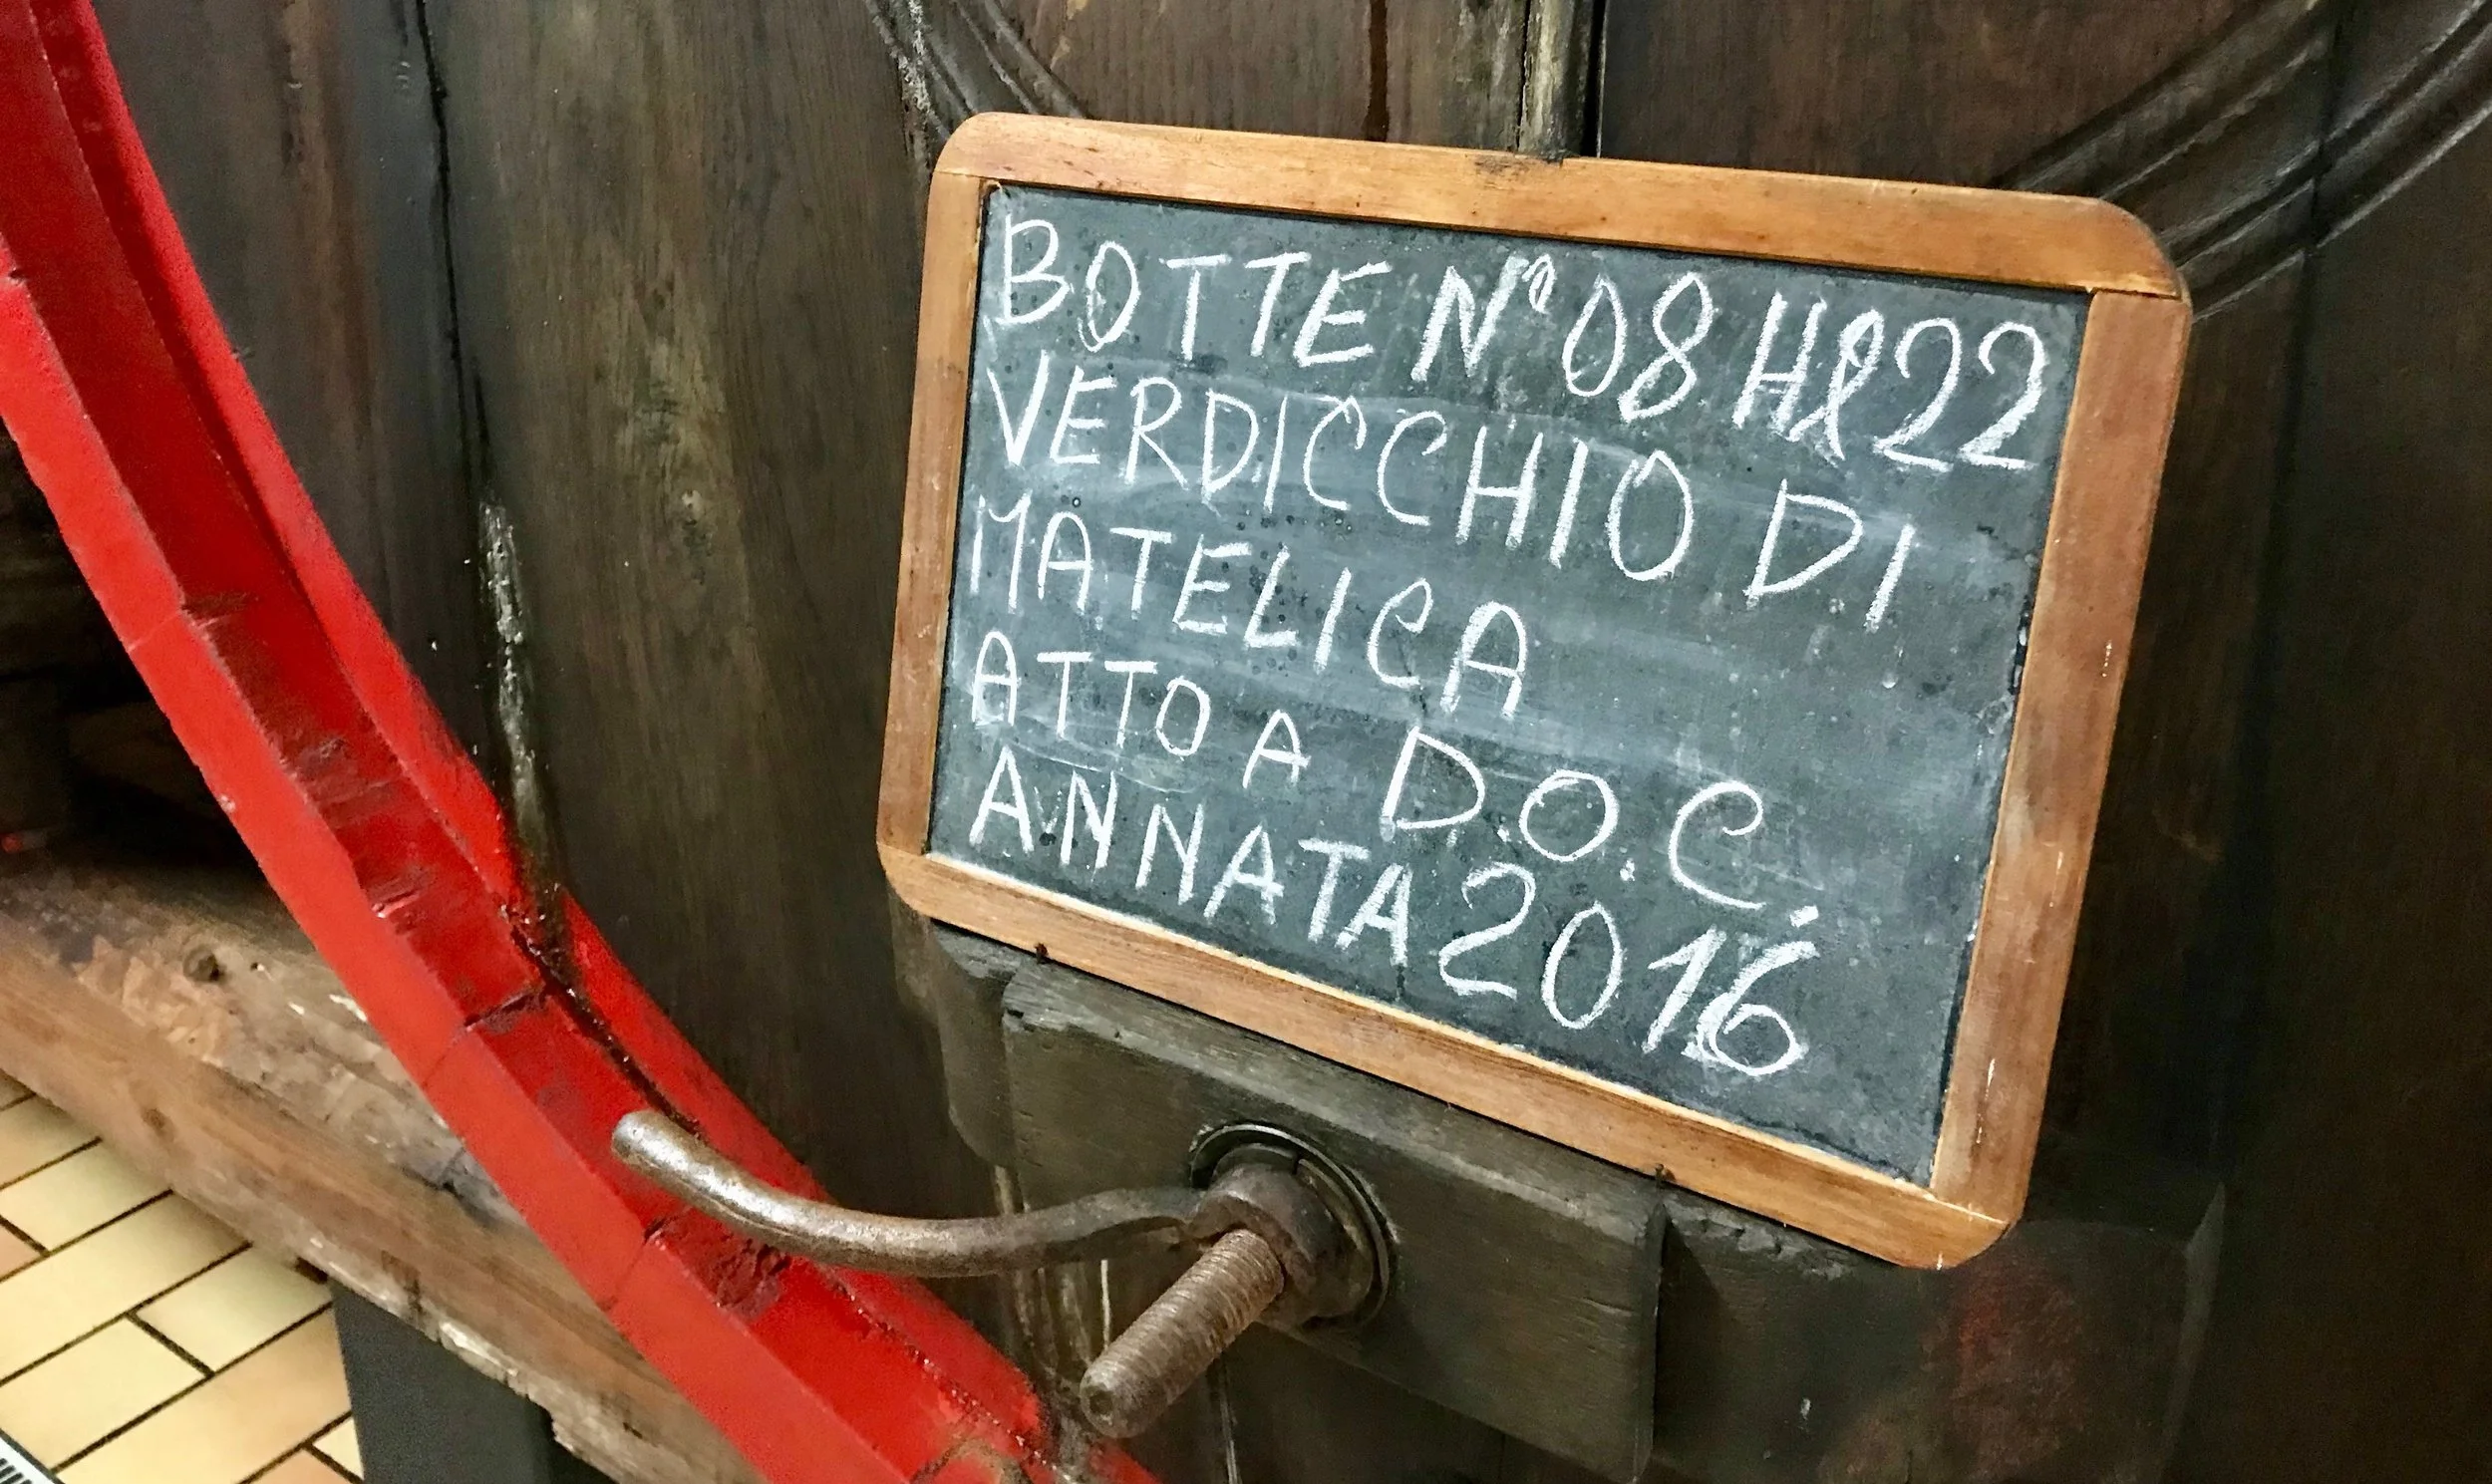 BOTTE N° 08 Hl 22
VERDICCHIO DI
MATELICA
ATTO A D.O.C.
ANNATA 2016